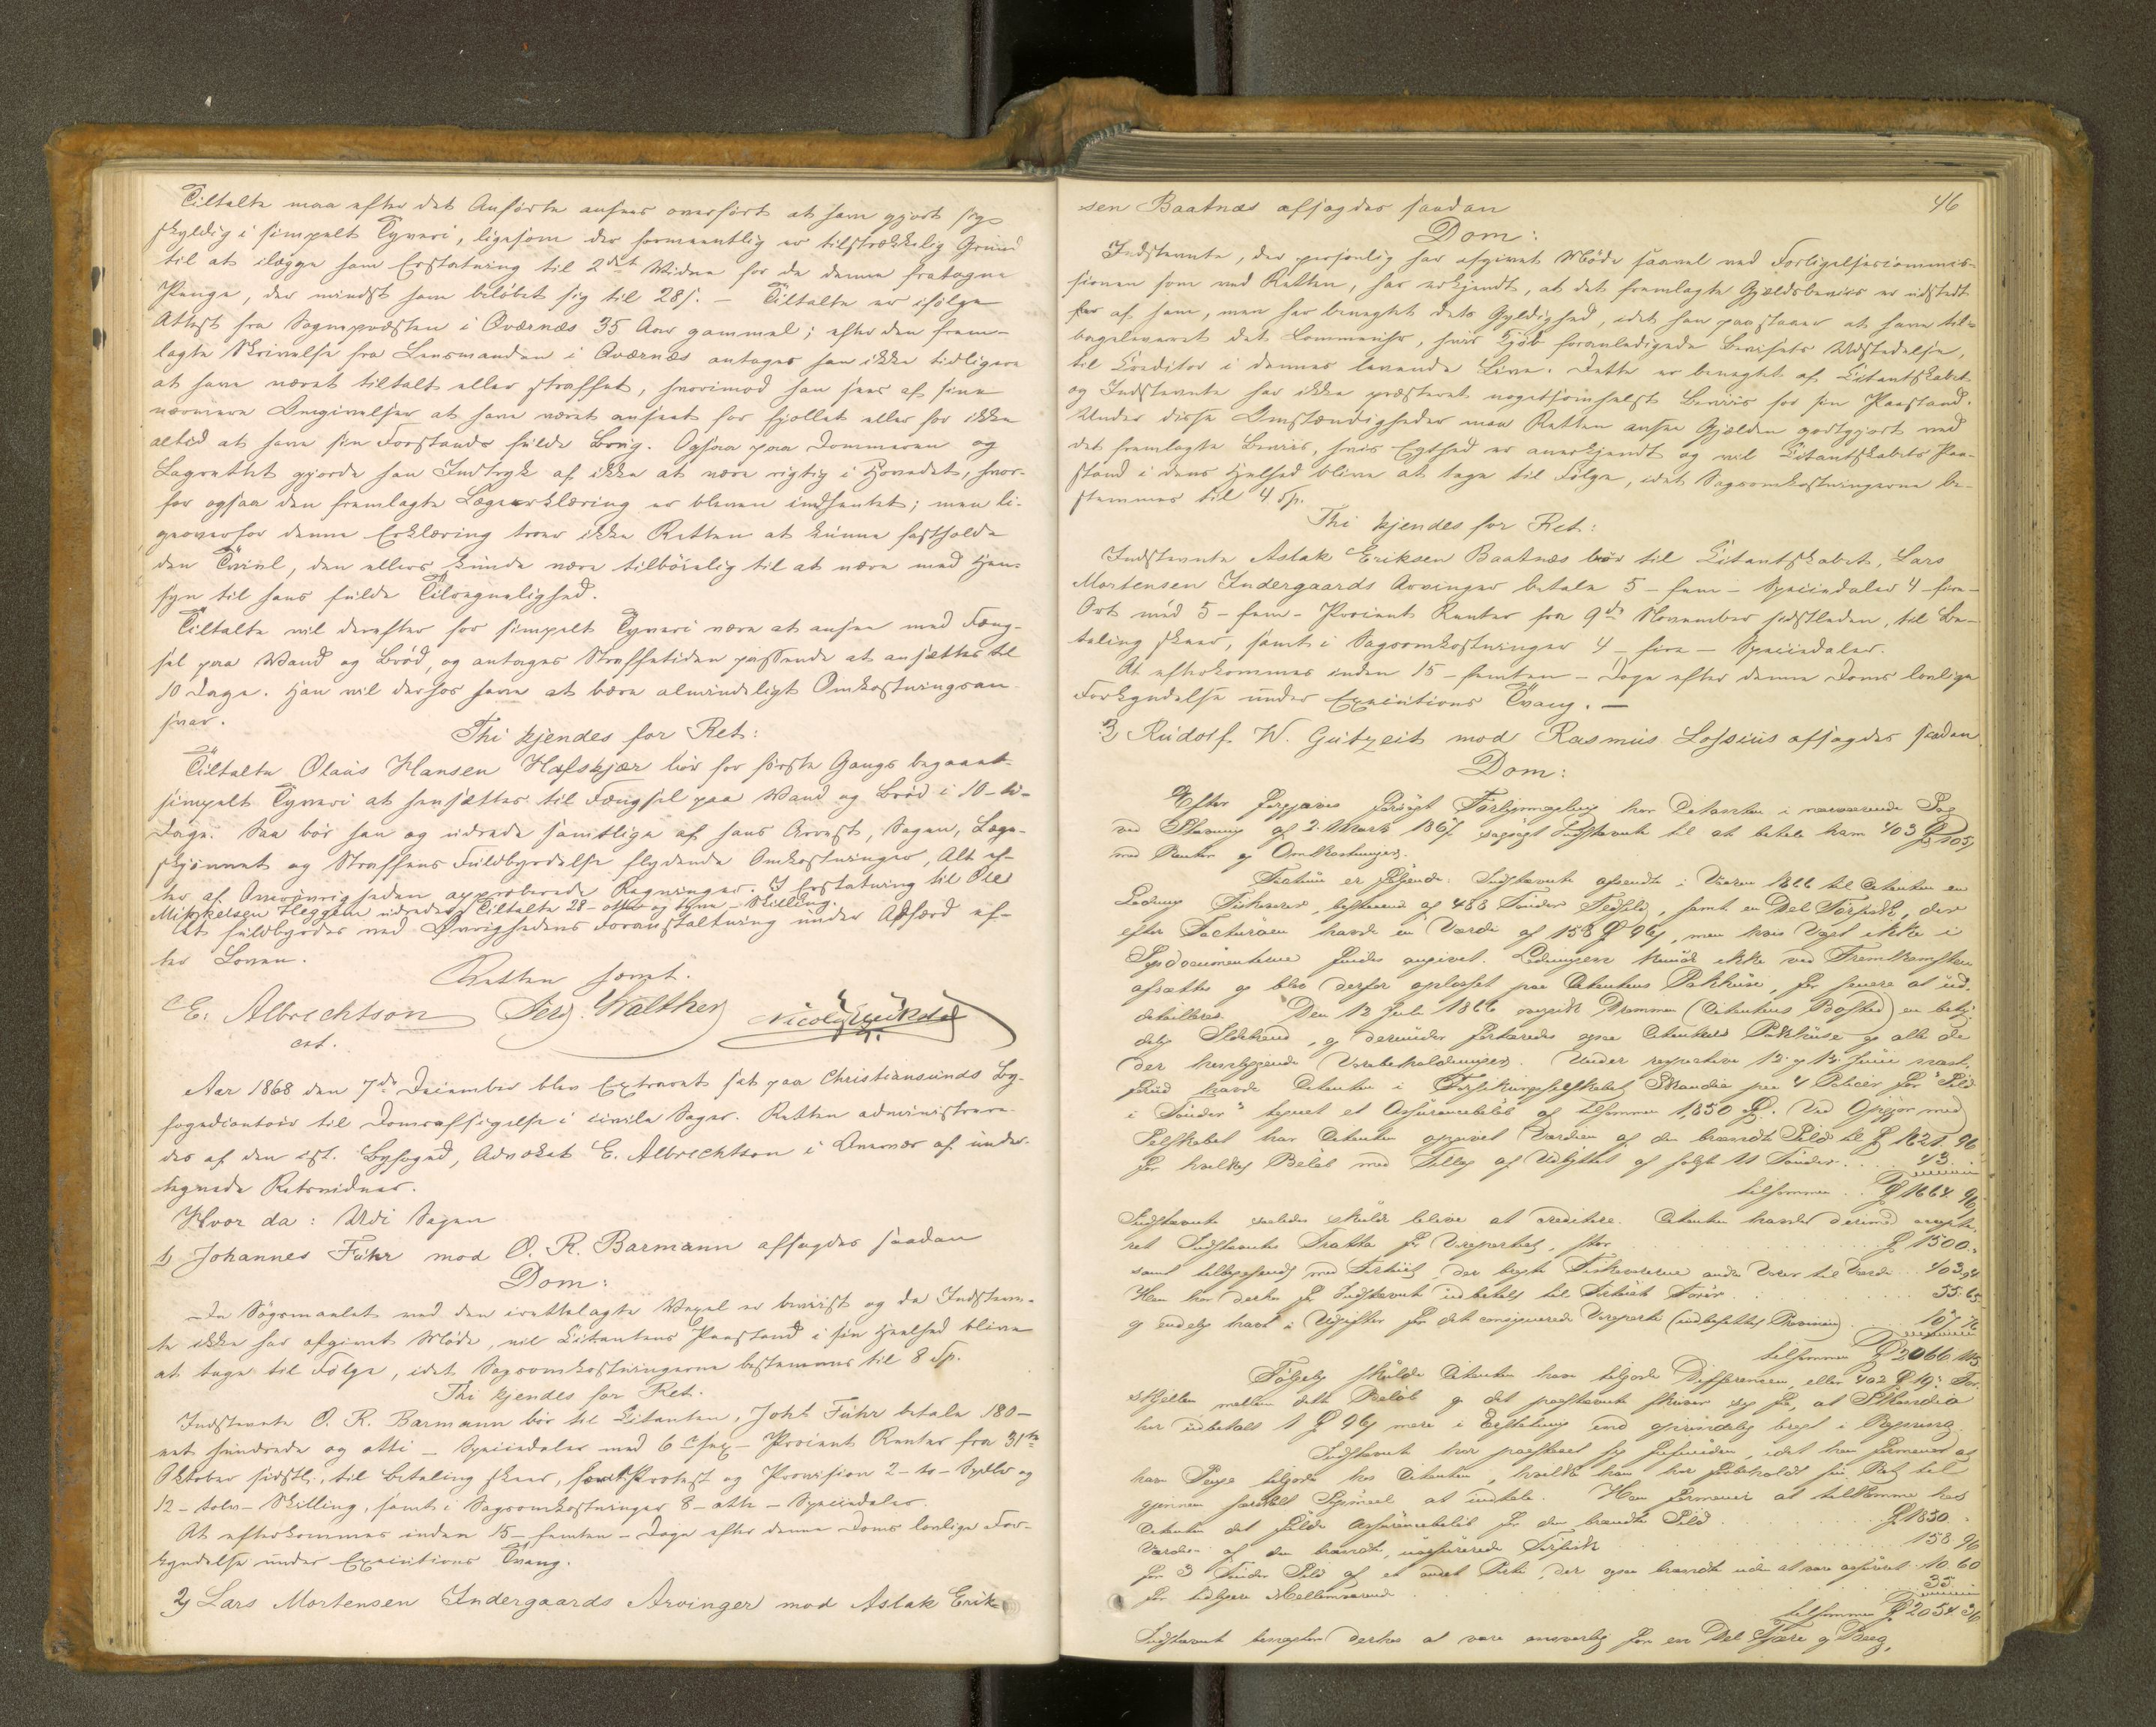 Tiltalte maa efter det Anførte ansees overført at have gjort sig
skyldig i simpelt Tyveri, ligesom der formeentlig er tilstrækkelig Grund
til at ilægge ham Erstatning til 2det Vidne for de denne fratagne
Penge, der mindst have beløbet sig til 28 s. – Tiltalte er ifølge
Attest fra Sognepræsten i Qværnæs 35 Aar gammel; efter den frem-
lagte Skrivelse fra Lensmanden i Qværnæs antages han ikke tidligere
at have været tiltalt eller straffet, hvorimod han sees af sine
nærmere Omgivelser at have været anseet for fjollet eller for ikke
altid at have sin Forstands fulde Brug. Ogsaa paa Dommeren og
Lagrettet gjorde han Indtryk af ikke at være rigtig i Hovedet, hvor-
for ogsaa den fremlagte Lægeerklæring er bleven indhentet; men li-
geoverfor denne Erklæring troer ikke Retten at kunne fastholde
den Tvivl, den ellers kunde være tilbøielig til at nære med Hen-
syn til hans fulde Tilregnelighed.
Tiltalte vil derefter for simpelt Tyveri være at ansee med Fæng-
sel paa Vand og Brød, og antages Straffetiden passende at ansættes til
10 Dage. Han vil derhos have at bære almindeligt Omkostningsan-
svar.
Thi kjendes for Ret:
Tiltalte Olaus Hansen Hafskjær bør for første Gangs begaaet
simpelt Tyveri at hensættes til Fængsel paa Vand og Brød i 10 – ti –
Dage. Saa bør han og udrede samtlige af hans Arrest, Sagen, Læge-
skjønnet og Straffens Fuldbyrdelse flydende Omkostninger, Alt ef-
ter af Overøvrigheden approberede Regninger. I Erstatning til Ole
Mikkelsen Heggem udreder Tiltalte 28 – otte og tyve – Skilling.
At fuldbyrdes ved Øvrighedens Foranstaltning under Adfærd ef-
ter Loven.
Retten hævet.
E. Albrechtson Ferd. Walther Nicolay
cst.
Aar 1868 den 7de December blev Extraret sat paa Christiansunds By-
fogedcontoir til Domsafsigelse i civile Sager. Retten administrere-
des af den cst. Byfoged, Advokat E. Albrechtson i Overvær af under-
tegnede Retsvidner.
Hvor da: Udi Sagen
1, Johannes Führ mod O. R. Barmann afsagdes saadan
Dom:
Da Søgsmaalet ved den irettelagte Vexel er beviist og da Indstevn-
te ikke har afgivet Møde, vil Citantens Paastand i sin Heelhed blive
at tage til Følge, idet Sagsomkostningerne bestemmes til 8 Sp.
Thi kjendes for Ret.
Indstevnte O. R. Barmann bør til Citanten, Johs Führ betale 180 –
eet hundrede og otti – Speciedaler med 6 – sex – Procent Renter fra 31te
Oktober sidstl., til Betaling skeer, samt Protest og Provision 2 – to – Spdlr og
12 – tolv – Skilling, samt i Sagsomkostninger 8 – otte – Speciedaler.
At efterkommes inden 15 – femten – Dage efter denne Doms lovlige For-
kyndelse under Executions Tvang.
2, Lars Mortensen Indergaards Arvinger mod Aslak Erik-
46
sen Baatnæs afsagdes saadan
Dom:
Indstevnte, der personlig har afgivet Møde saavel ved Forligelsescommis-
sionen som ved Retten, har erkjendt, at det fremlagte Gjældsbeviis er udstedt
af ham, men har benegtet dets Gyldighed, idet han paastaaer at have til-
bageleveret det Kommerse, hvis Kjøb foranledigede Bevisets Udstedelse,
til Creditor i dennes levende Live. Dette er benegtet af Citantskabet
og Indstevnte har ikke præsteret nogetsomhelst Beviis for sin Paastand.
Under disse Omstændigheder maa Retten ansee Gjælden godtgjort ved
det fremlagte Beviis, hvis Egthed er anerkjendt og vil Citantskabets Paa-
stand i dens Helhed blive at tage til Følge, idet Sagsomkostningerne be-
stemmes til 4 Sp.
Thi kjendes for Ret:
Indstevnte Aslak Eriksen Baatnæs bør til Citantskabet, Lars
Mortensen Indergaards Arvinger betale 5 – fem – Speciedaler 4 – fire –
Ort med 5 – fem – Procent Renter fra 9de November sidstleden, til Be-
taling skeer, samt i Sagsomkostninger 4 – fire – Speciedaler.
At efterkommes inden 15 – femten – Dage efter denne Doms lovlige
Forkyndelse under Executions Tvang. –
3, Rudolf W. Gutzeit mod Rasmus Lossius afsagdes saadan
Dom:
Efter forgjæves forsøgt Forligsmægling har Citanten i nærværende Sag
ved Stevning af 2. Marts 1867 sagsøgt Indstævnte til at betale ham 403
med Renter og Omkostninger.
Factum er følgende: Indstævnte afsendte i Vaaren 1866 til Citanten en
Ladning Fiskevarer, bestaaende af 488 Tønder Fedsild, samt en Del Tørfisk, der
efter Facturaen havde en Værdi af 158 96, men hvis Vægt ikke i
Sagsdocumenterne findes angivet. Ladningen kunde ikke ved Fremkomsten
afsættes og blev derfor oplosset paa Citantens Pakhuse, for senere at ud-
detailleres. Den 13 Juli 1866 overgik Drammen (Citantens Bosted) en bety-
delig Ildebrand, og derunder fortæredes ogsaa Citantens Pakhuse og alle de
der henliggende Varebeholdninger. Under respective 12 og 13 Juni næst-
forud havde Citanten i Forsikringsselskabet Skandia paa 4 Policer for "Sild
i Tønder" tegnet et Assurancebeløb af tilsammen 1,850. Ved Opgjør med
Selskabet har Citanten opgivet Værdien af den brændte Sild til 1621. 96
for hvilket Beløb med Tillæg af Udbyttet af solgte 11 Tønder . . 43.
tilsammen . . 1664. 96
Indstævnte saaledes skulde blive at creditere. Citanten havde derimod accepte-
ret Indstævntes Tratta for Vareparthiet, stor . . . 1500.
samt tilbagesendt med Fartøiet, der bragte Fiskevarerne andre Varer til Værdi . . 403. 94
Han har derhos for Indstævnte udbetalt til Fartøiet . . . 55. 65
og endelig havt i Udgifter for det consignerede Vareparthi (indbefattet Provision) . . 107
tilsammen 2066. 115
Følgelig skulde Citanten have tilgode Differencen, eller 402 19. For-
skjellen mellem dette Beløb og det paastævnte skriver sig fra, at Skandia
har udbetalt 1 96 mere i Erstatning end oprindelig bragt i Regning.
Indstævnte har paastaaet sig frifunden, idet han formener at
have Penge tilgode hos Citanten, hvilke han har forbeholdt sin Ret til
gjennem særskilt Søgsmaal at indtale. Han formener at tilkomme hos
Citanten det fulde Assurancebeløb for den brændte Sild . . . 1850.
Værdien af den brændte, uassurerede Tørfisk . . . 158. 96
for 3 Tønder Sild af et andet Parti, der ogsaa brændte uden at være assureret . 10. 60
for tidligere Mellemværende . . . 35.
tilsammen 2054. 36
Indstævnte benægter derhos at være ansvarlig for en Del Tjære og Beeg,